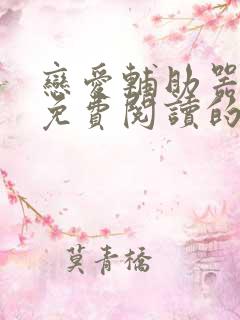 戀愛輔助器
免費閱讀的
莫青橋